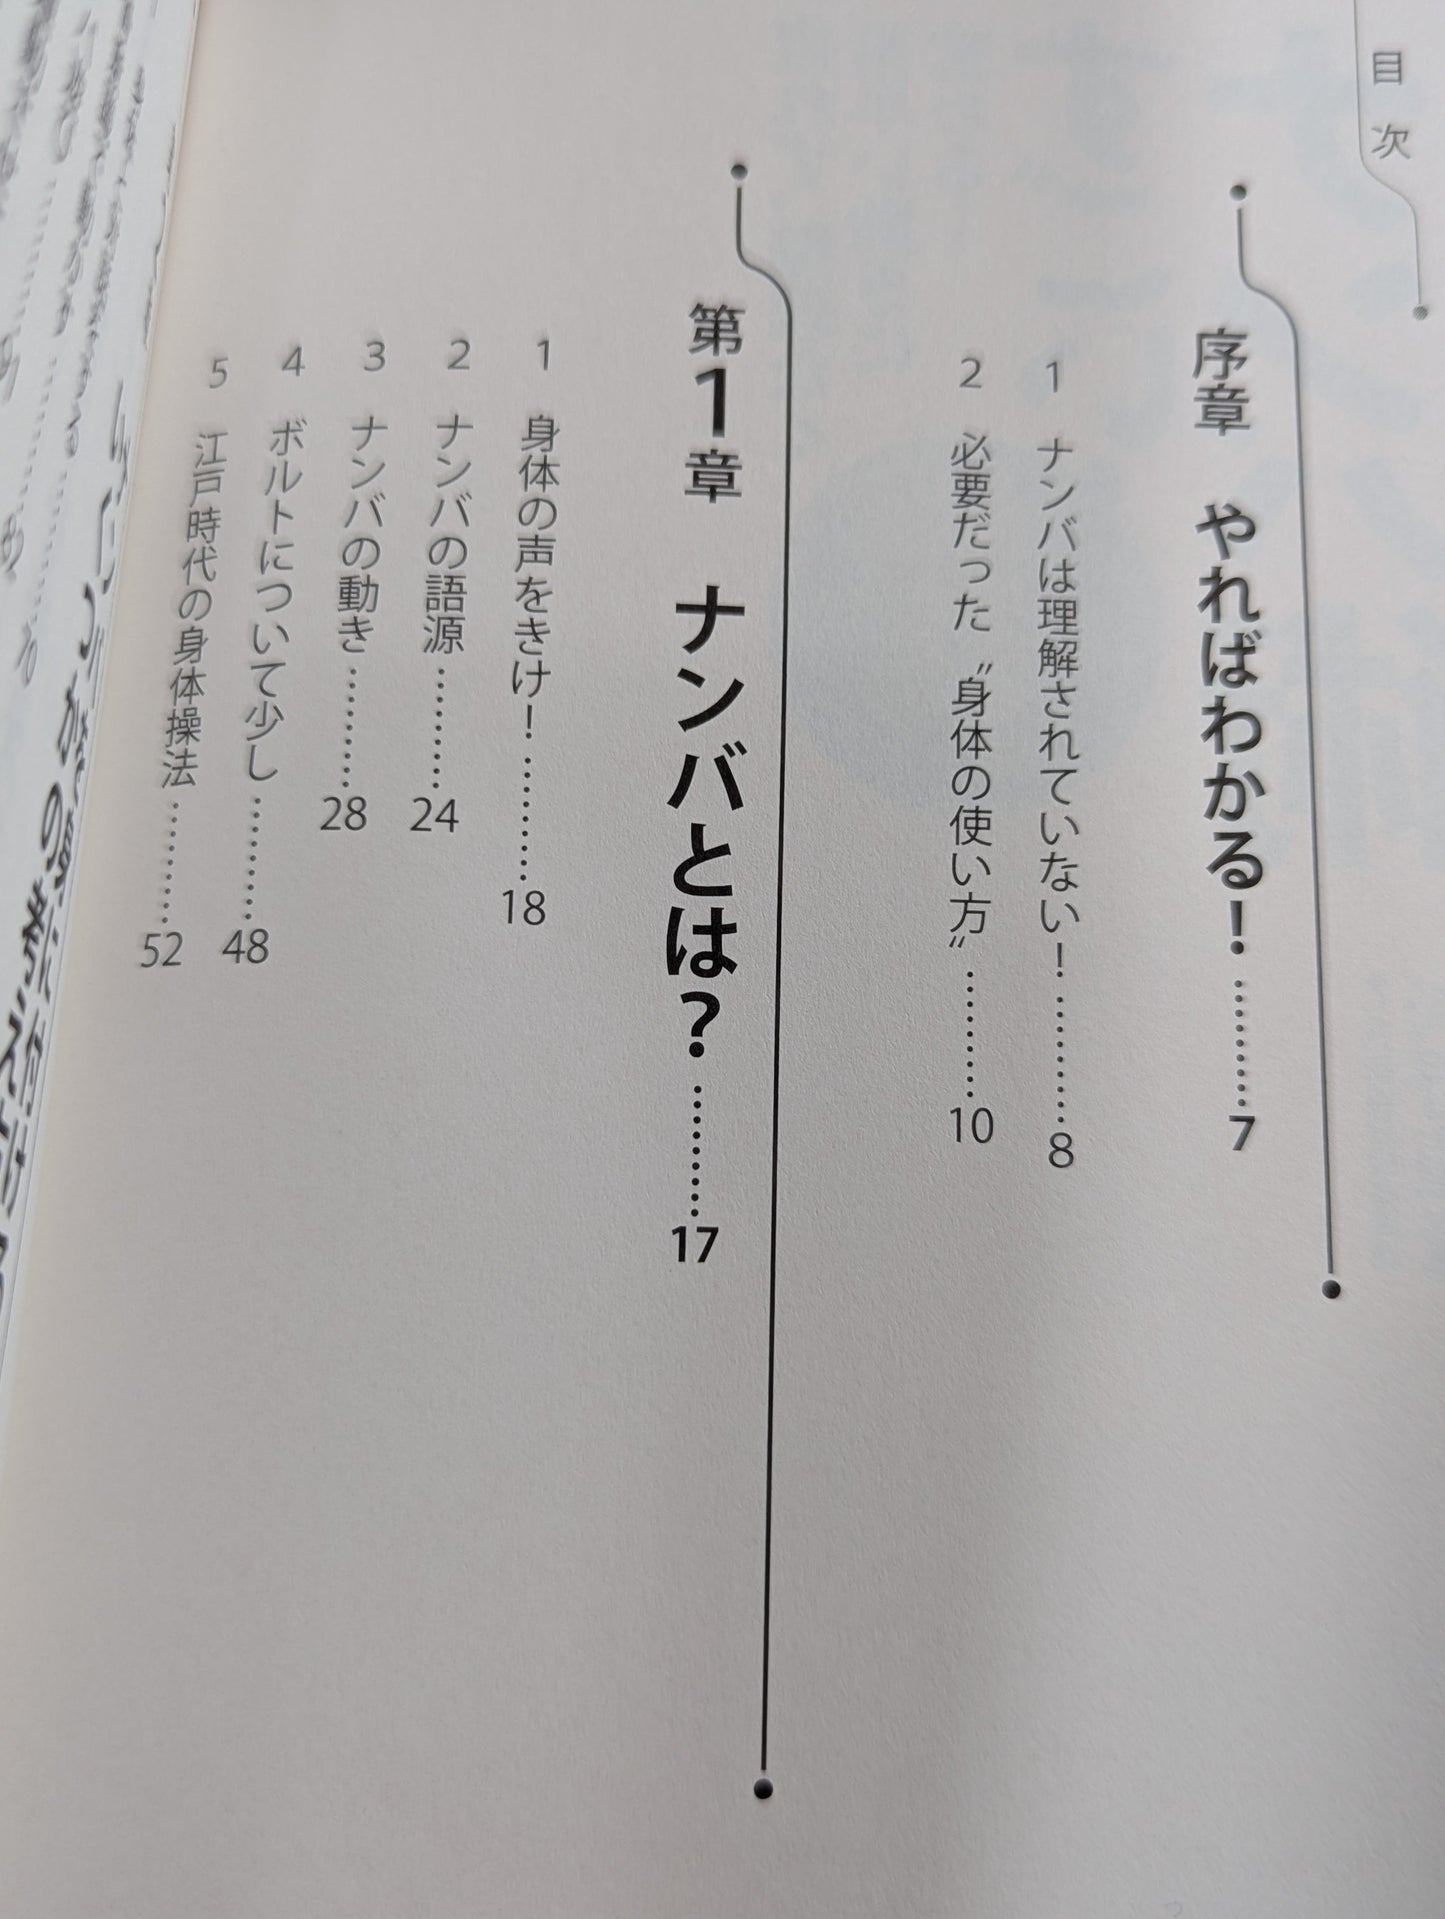 目次
序章 やればわかる!………7
1 ナンバは理解されていない!………8
2 必要だった〝身体の使い方〟………10
第1章 ナンバとは?………17
1 身体の声をきけ!………18
2 ナンバの語源………24
3 ナンバの動き………28
4 ボルトについて少し………48
5 江戸時代の身体操法………52